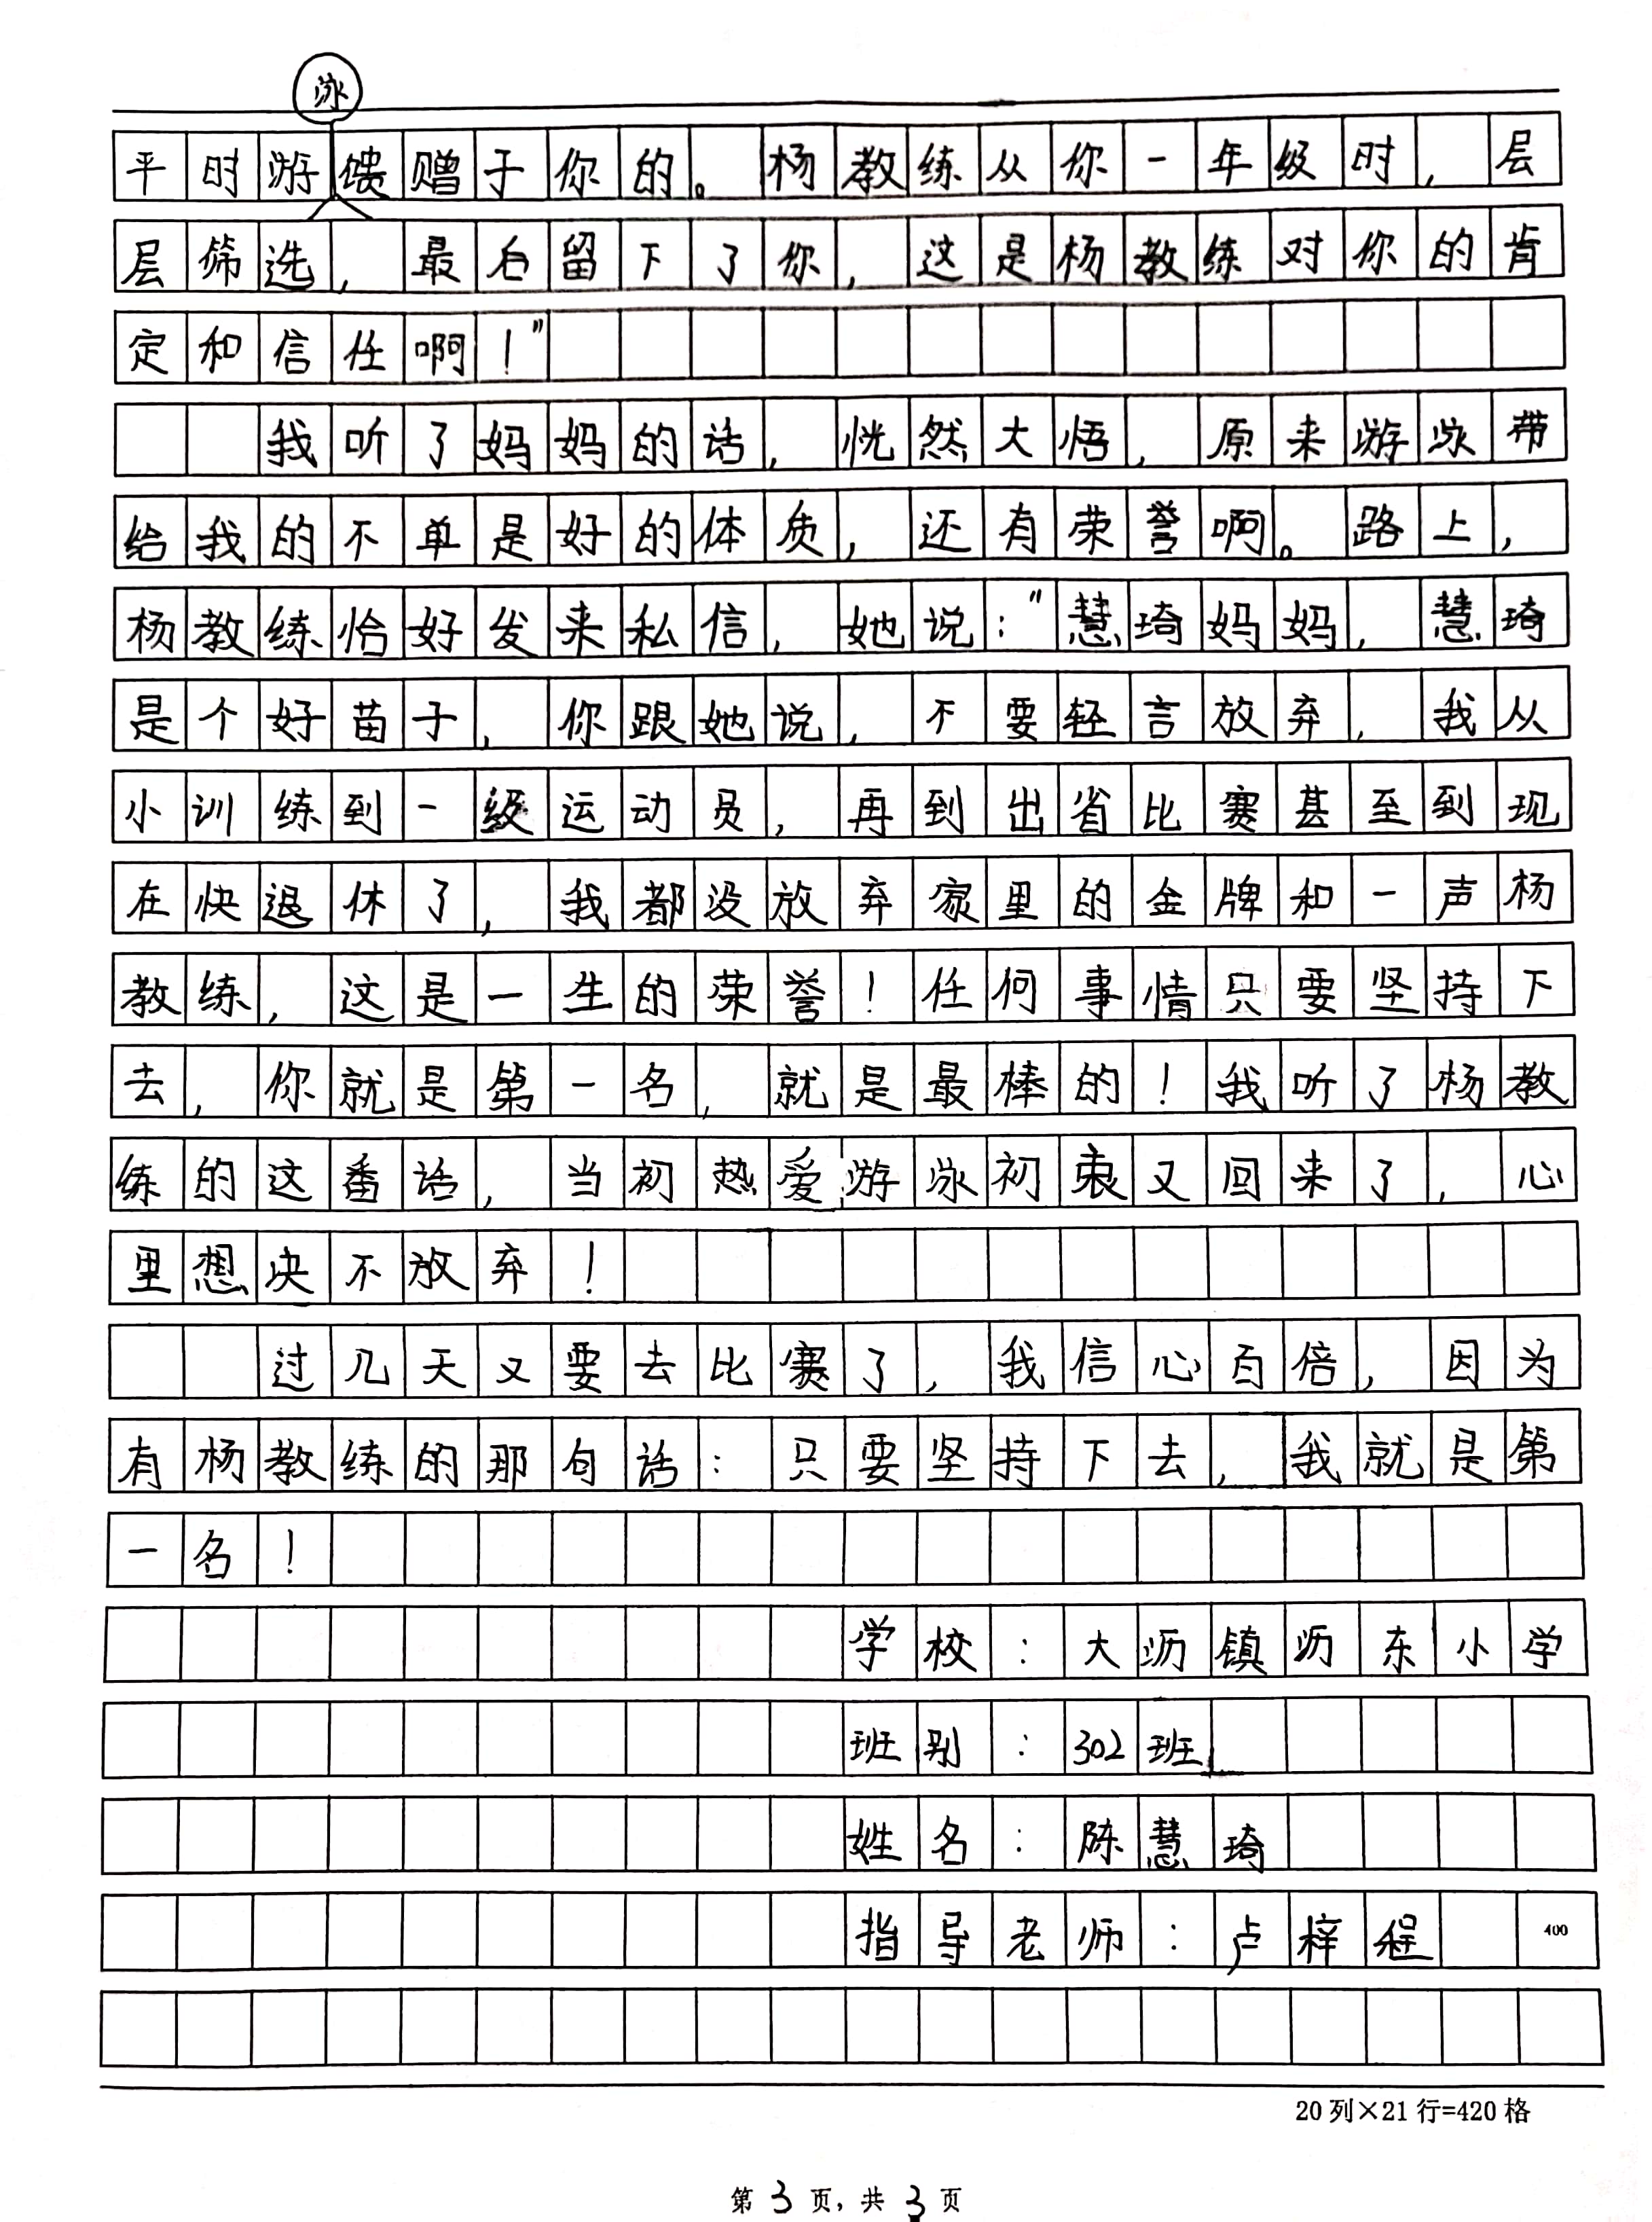 泳
平时游馈赠于你的。杨教练从你一年级时，层
层筛选，最后留下了你，这是杨教练对你的肯
定和信任啊！”
我听了妈妈的话，恍然大悟，原来游泳带
给我的不单是好的体质，还有荣誉啊。路上，
杨教练恰好发来私信，她说：“慧琦妈妈，慧琦
是个好苗子，你跟她说，不要轻言放弃，我从
小训练到一级运动员，再到出省比赛甚至到现
在快退休了，我都没放弃家里的金牌和一声杨
教练，这是一生的荣誉！任何事情只要坚持下
去，你就是第一名，就是最棒的！我听了杨教
练的这番话，当初热爱游泳初衷又回来了，心
里想决不放弃！
过几天又要去比赛了，我信心百倍，因为
有杨教练的那句话：只要坚持下去，我就是第
一名！
学校：大沥镇沥东小学
班别：302班
姓名：陈慧琦
指导老师：卢梓程
400
20列×21行=420格
第3页，共3页